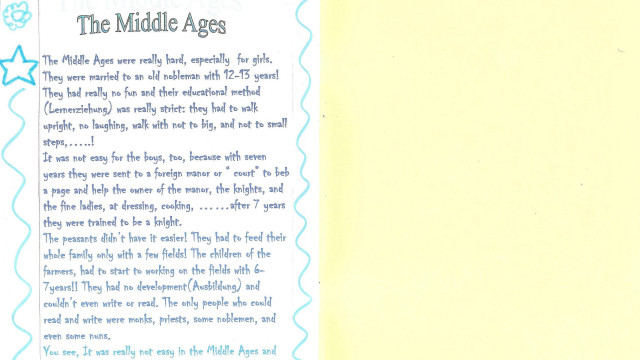 The Middle Ages
The Middle Ages were really hard, especially for girls.
They were married to an old nobleman with 12-13 years!
They had really no fun and their educational method
(Lernerziehung) was really strict: they had to walk
upright, no laughing, walk with not to big, and not to small
steps,.....!
It was not easy for the boys, too, because with seven
years they were sent to a foreign manor or “ court” to beb
a page and help the owner of the manor, the knights, and
the fine ladies, at dressing, cooking, ......after 7 years
they were trained to be a knight.
The peasants didn’t have it easier! They had to feed their
whole family only with a few fields! The children of the
farmers, had to start to working on the fields with 6-
7years!! They had no development(Ausbildung) and
couldn’t even write or read. The only people who could
read and write were monks, priests, some noblemen, and
even some nuns.
You see, It was really not easy in the Middle Ages and